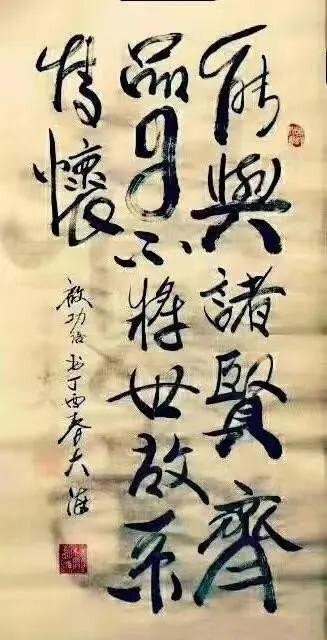 能與諸賢齊
品目不將世故系
情懷
啟功語 書丁酉春大維